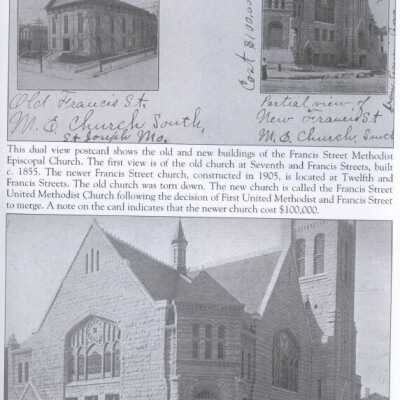 Old Francis St.
M. E. Church South,
St Joseph Mo.
Cost $1
Partial view of
New Francis St
M. E. Church, South
This dual view postcard shows the old and new buildings of the Francis Street Methodist
Episcopal Church. The first view is of the old church at Seventh and Francis Streets, built
c. 1855. The newer Francis Street church, constructed in 1905, is located at Twelfth and
Francis Streets. The old church was torn down. The new church is called the Francis Street
United Methodist Church following the decision of First United Methodist and Francis Street
to merge. A note on the card indicates that the newer church cost $100,000.